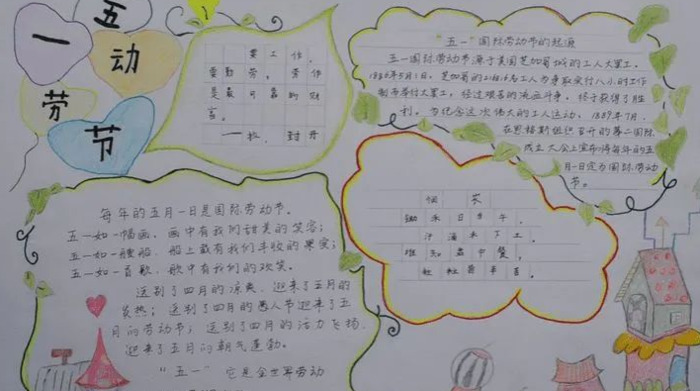 五
一
动
劳
节
要工作,
要勤劳。劳作
是最可靠的财
富。
"五一"国际劳动节的起源
五一国际劳动节源于美国芝加哥城的工人大罢工,
1886年5月1日,芝加哥的二十一万六千余名工人为争取实行八小时工作
制而举行大罢工,经过艰苦的流血斗争,终于获得了胜
利。为纪念这次伟大的工人运动,1889年7月,
在恩格斯组织召开的第二国际
成立大会上宣布将每年的五
月一日定为国际劳动
节。
悯农
锄禾日当午,
汗滴禾下土。
谁知盘中餐,
粒粒皆辛苦。
每年的五月一日是国际劳动节。
五一如一幅画,画中有我们甜美的笑容;
五一如一艘船,船上载有我们丰收的果实;
五一如一首歌,歌中有我们的欢笑。
送别了四月的凉爽,迎来了五月的
炎热;送别了四月的愚人节迎来了五
月的劳动节;送别了四月的活力飞扬,
迎来了五月的朝气蓬勃。
"五一"它是全世界劳动